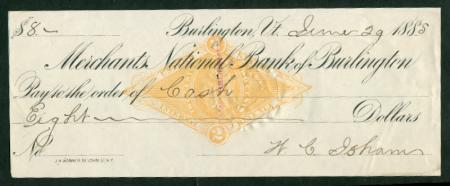 $8 Burlington, Vt. June 29 1885
Merchants National Bank of Burlington
Pay to the order of Cash
Eight Dollars
No. W C Isham